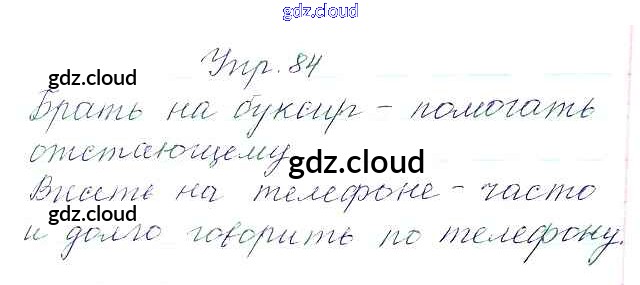 gdz.cloud
Упр. 84
gdz.cloud
Брать на буксир - помогать
отстающему.
gdz.cloud
Висеть на телефоне - часто
gdz.cloud
и долго говорить по телефону.